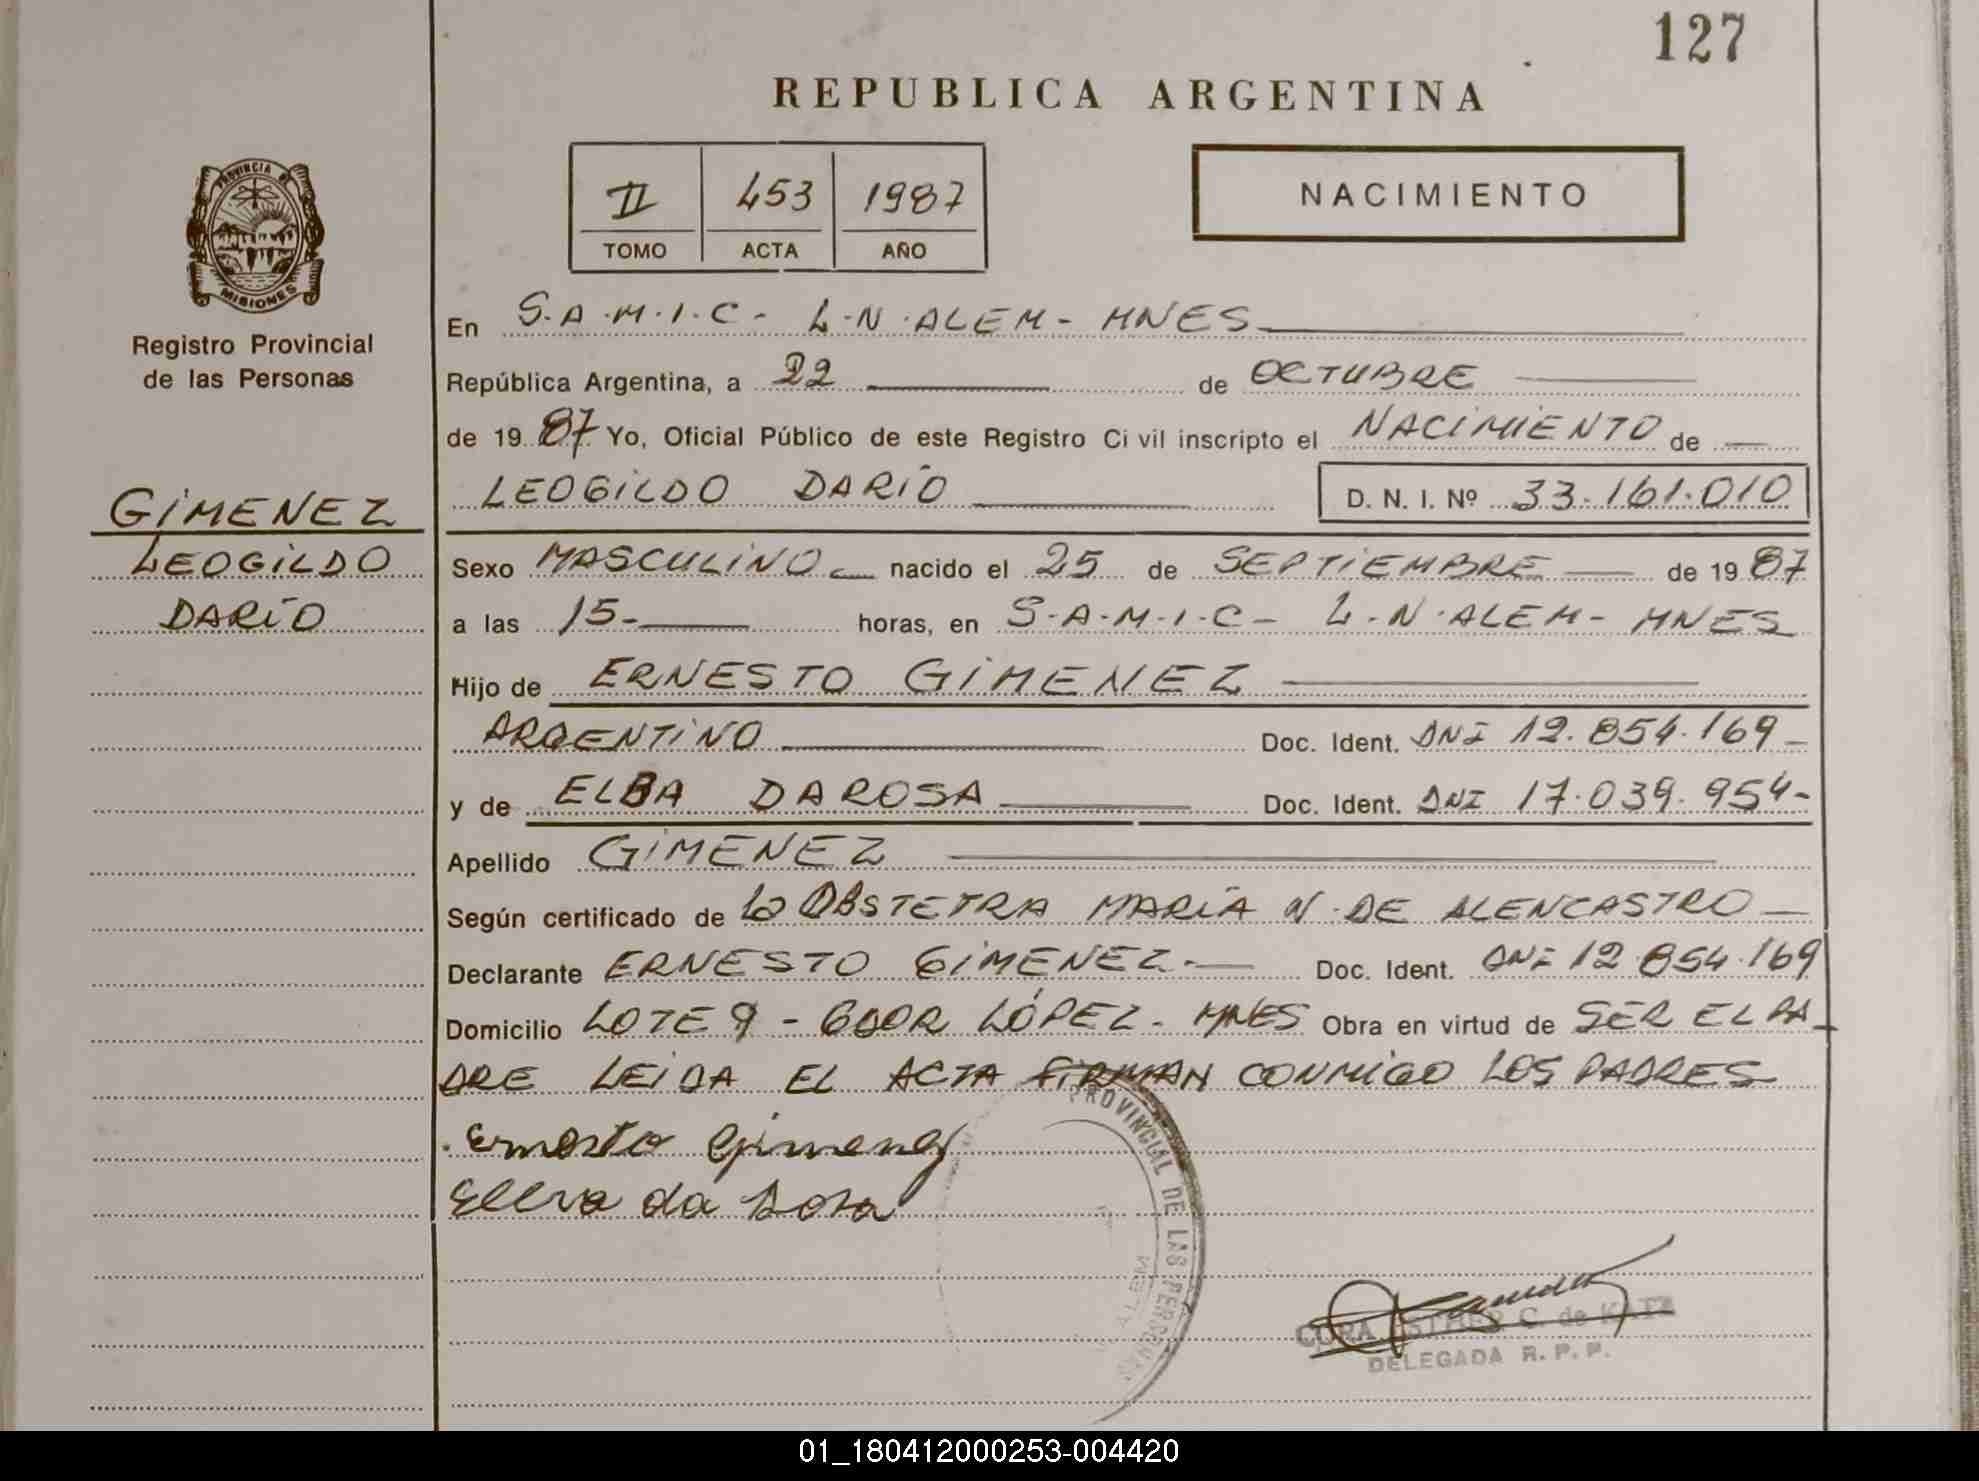 127
REPUBLICA ARGENTINA
II 453 1987
TOMO ACTA AÑO
NACIMIENTO
PROVINCIA DE
MISIONES
Registro Provincial
de las Personas
GIMENEZ
LEOGILDO
DARÍO
En S.A.M.I.C- L.N.ALEM- MNES
República Argentina, a 22 de OCTUBRE
de 1987 Yo, Oficial Público de este Registro Ci vil inscripto el NACIMIENTO de
LEOGILDO DARÍO D. N. I. Nº 33.161.010
Sexo MASCULINO nacido el 25 de SEPTIEMBRE de 1987
a las 15- horas, en S.A.M.I.C- L.N.ALEM- MNES
Hijo de ERNESTO GIMENEZ
ARGENTINO Doc. Ident. DNI 12.854.169-
y de ELBA DAROSA Doc. Ident. DNI 17.039.954-
Apellido GIMENEZ
Según certificado de LA OBSTETRA MARÍA N. DE ALENCASTRO
Declarante ERNESTO GIMENEZ.- Doc. Ident. DNI 12.854.169
Domicilio LOTE 9 - GDOR LÓPEZ- MNES Obra en virtud de SER EL PA-
DRE LEIDA EL ACTA FIRMAN CONMIGO LOS PADRES
Ernesto Gimenez
Ellva da Rosa
PROVINCIAL DE LAS PERSONAS
ALEM
CORA ESTHER C. de KATZ
DELEGADA R. P. P.
01_180412000253-004420